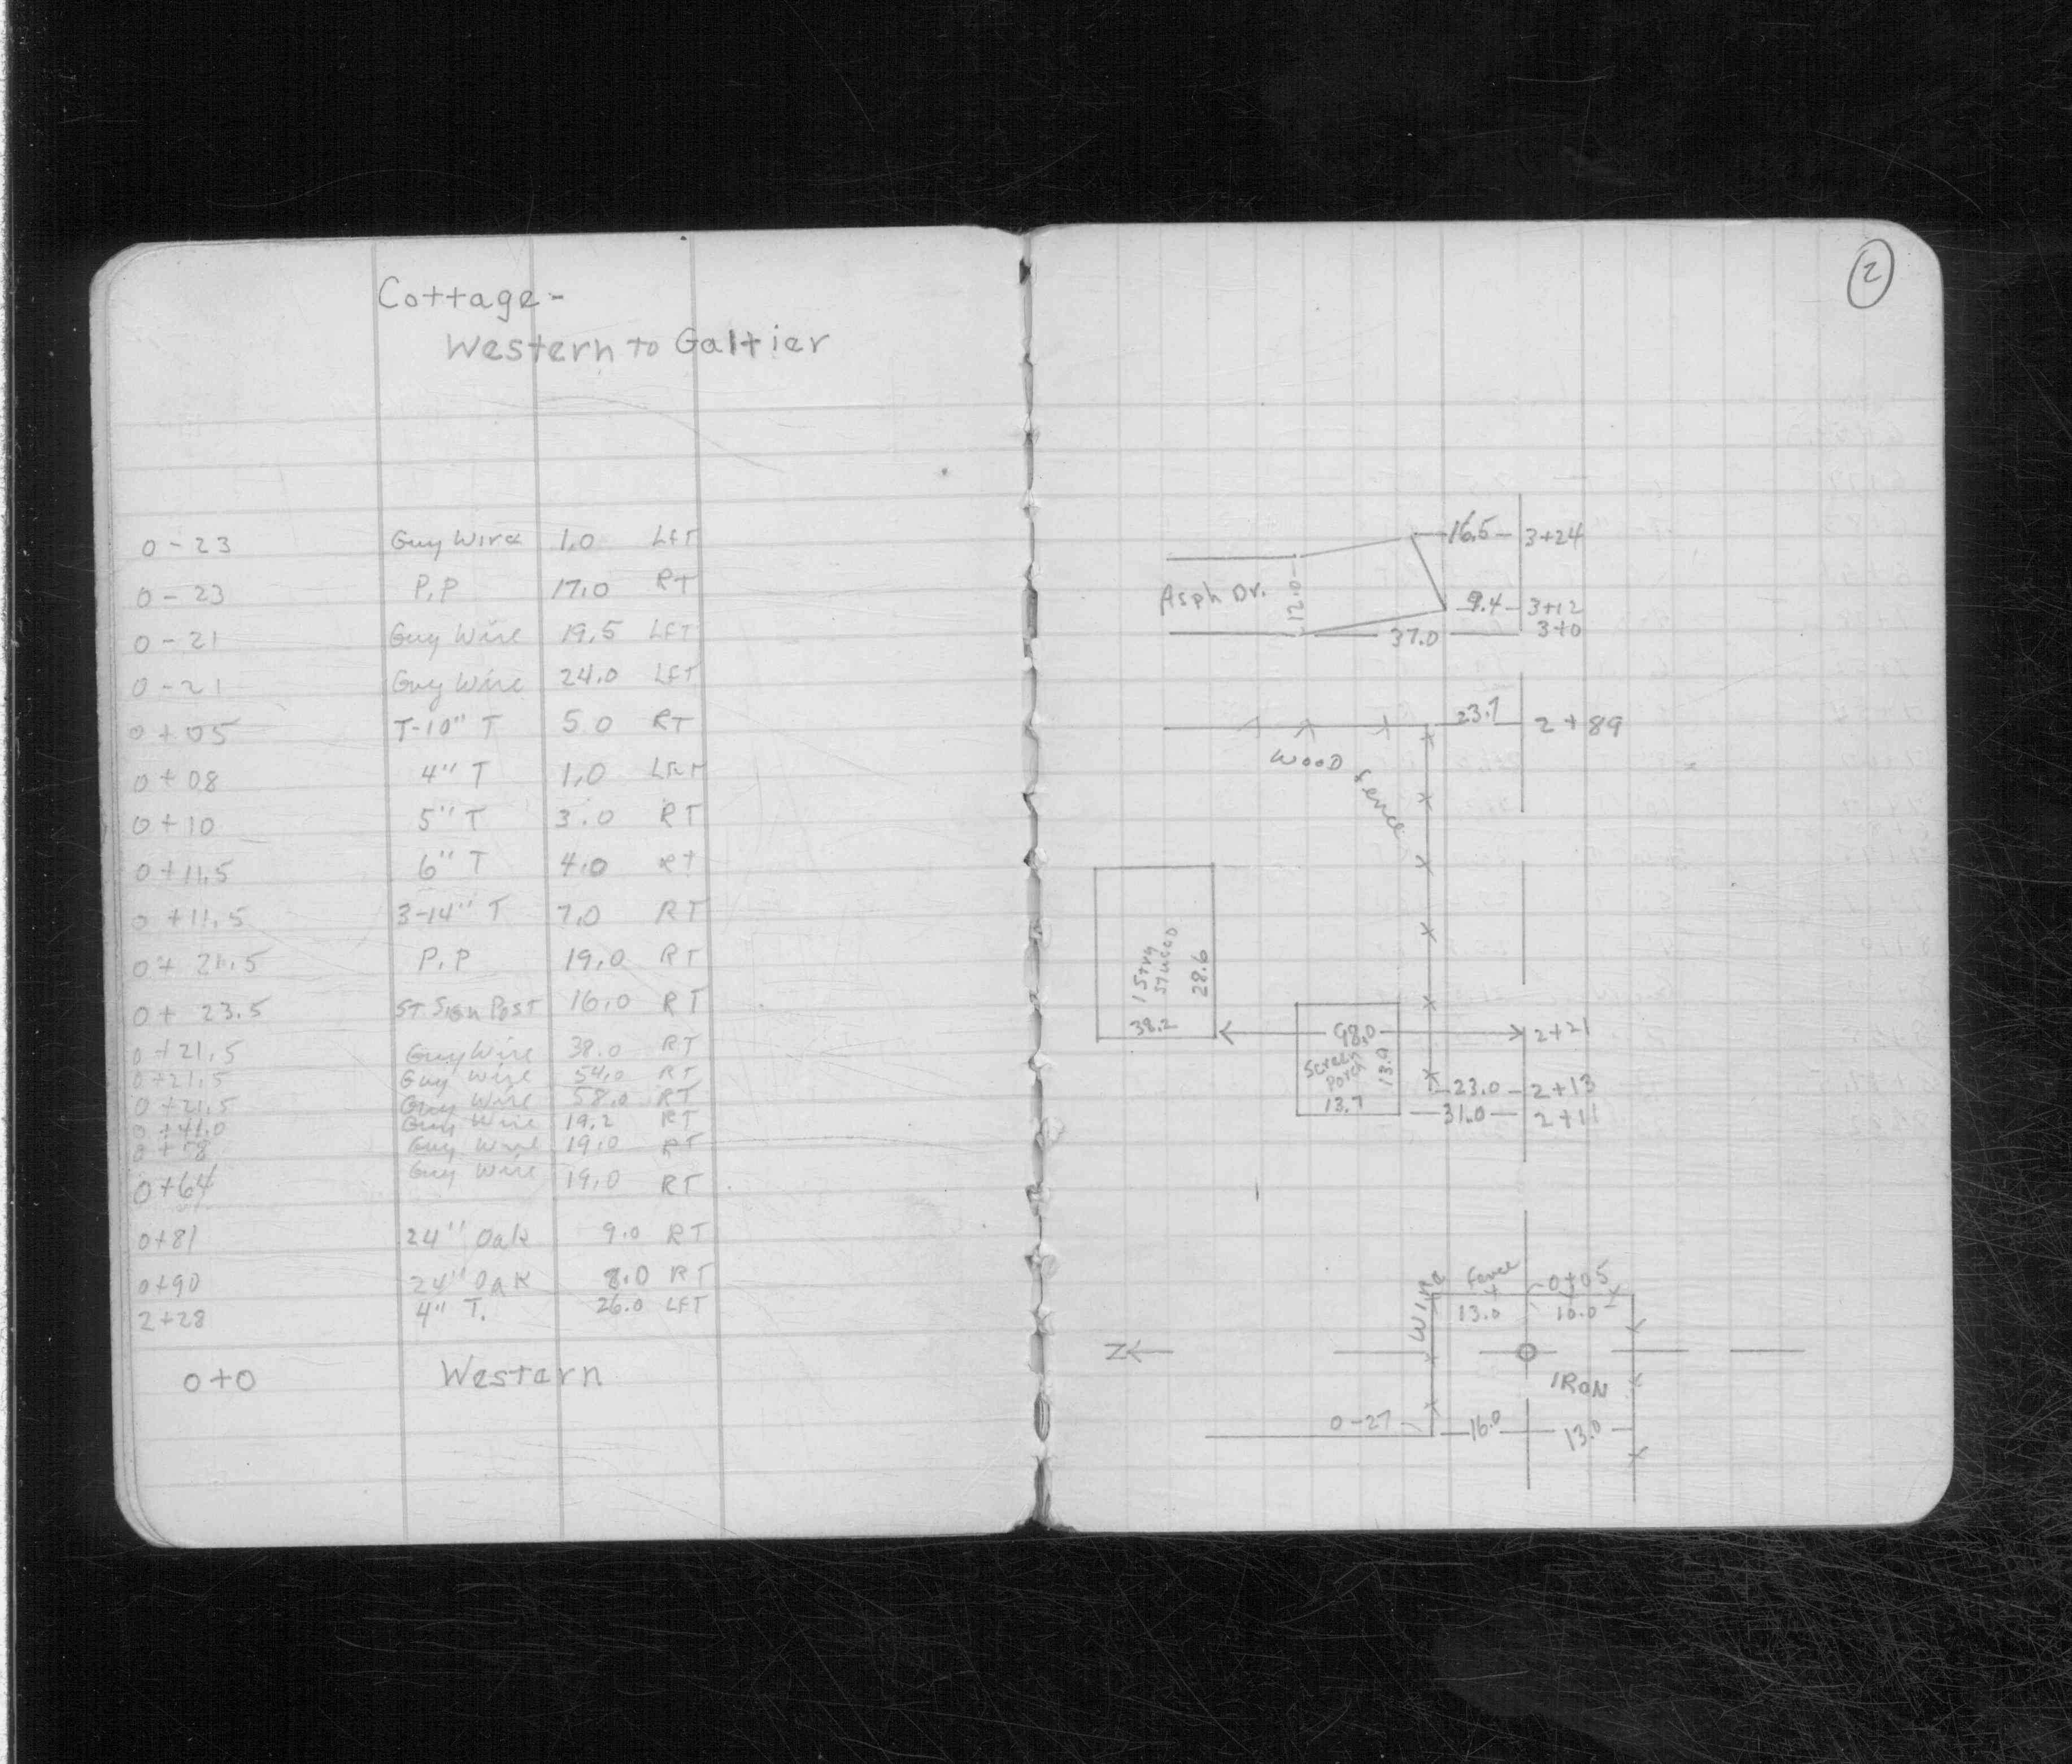 Cottage-
Western to Galtier
0-23 Guy Wire 1.0 LFT
0-23 P.P 17.0 RT
0-21 Guy Wire 19.5 LFT
0-21 Guy Wire 24.0 LFT
0+05 T-10" T 5.0 RT
0+08 4" T 1.0 LFT
0+10 5" T 3.0 RT
0+11.5 6" T 4.0 RT
0+11.5 3-14" T 7.0 RT
0+21.5 P.P 19.0 RT
0+23.5 ST. Sign Post 16.0 RT
0+21.5 Guy Wire 38.0 RT
0+21.5 Guy Wire 54.0 RT
0+21.5 Guy Wire 58.0 RT
0+41.0 Guy Wire 19.2 RT
Guy Wire 19.0 RT
0+64 Guy Wire 19.0 RT
0+81 24" Oak 9.0 RT
0+90 24" Oak 8.0 RT
2+28 4" T. 26.0 LFT
0+0 Western
2
16.5 3+24
Asph Dr. 12.0
9.4 3+12
37.0 3+0
23.7 2+89
WOOD fence
1 Stry
Stucco
28.6
38.2
98.0 2+21
Screen
Porch
13.9
13.7
23.0 2+13
31.0 2+11
WIRE Fence 0+05
13.0 10.0
N
IRON
0-27 16.0 13.0